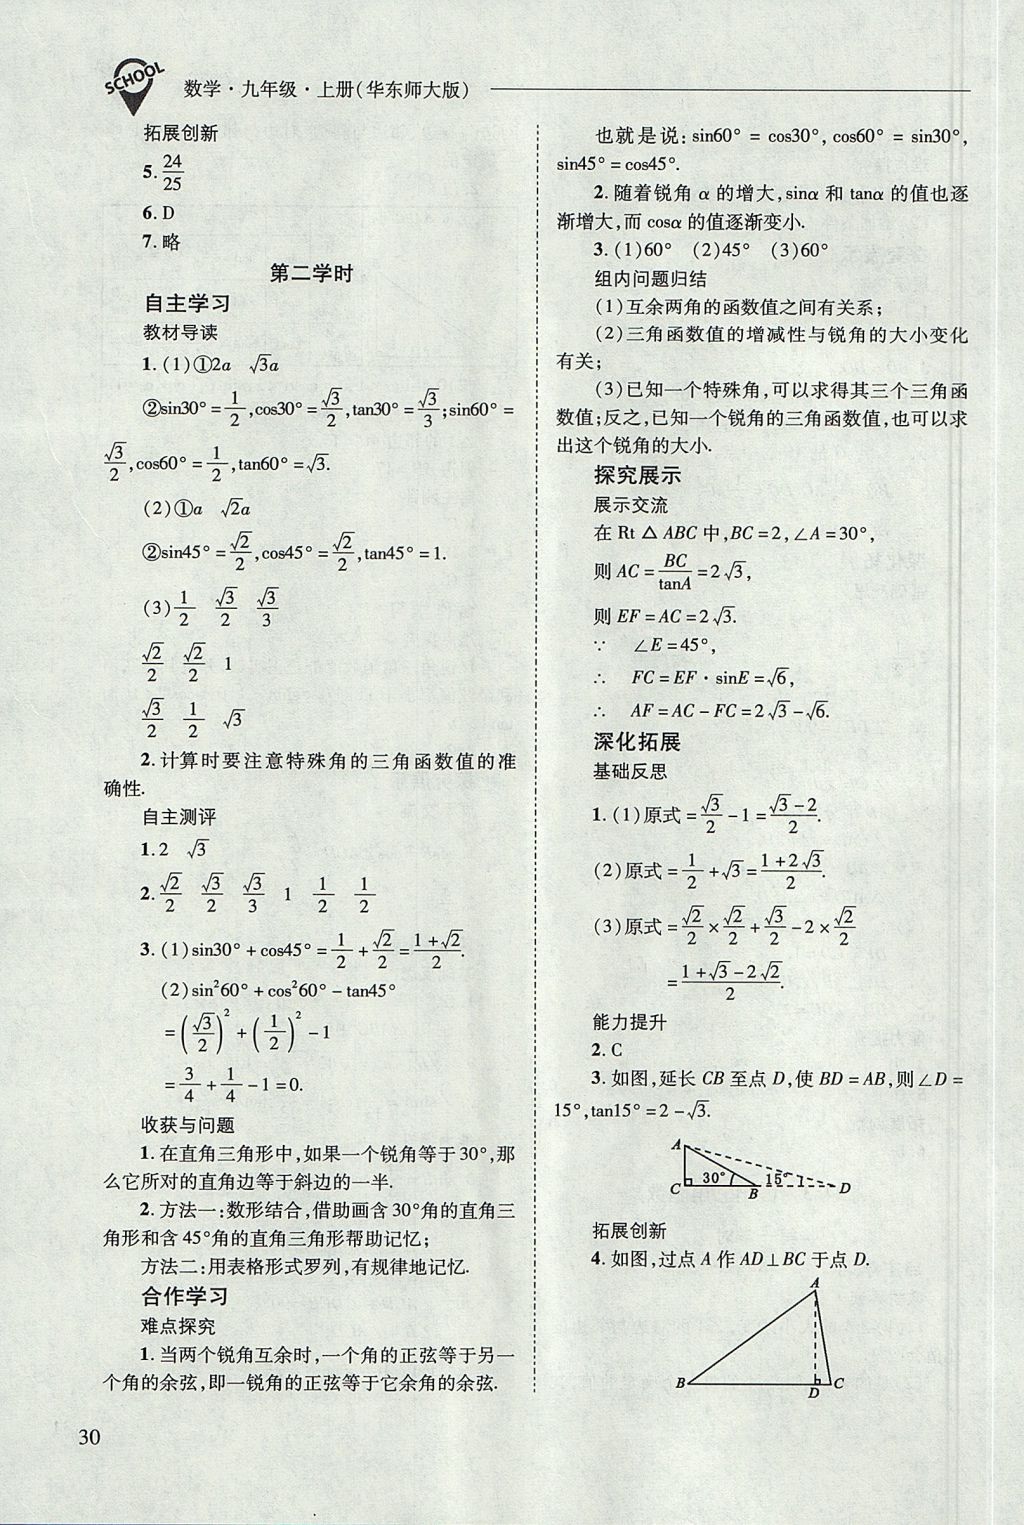 SCHOOL
数学·九年级·上册(华东师大版)
拓展创新
5. 24/25
6. D
7. 略
第二学时
自主学习
教材导读
1. (1)①2a √3a
②sin30° = 1/2, cos30° = √3/2, tan30° = √3/3; sin60° =
√3/2, cos60° = 1/2, tan60° = √3.
(2)①a √2a
②sin45° = √2/2, cos45° = √2/2, tan45° = 1.
(3) 1/2 √3/2 √3/3
√2/2 √2/2 1
√3/2 1/2 √3
2. 计算时要注意特殊角的三角函数值的准
确性.
自主测评
1. 2 √3
2. √2/2 √3/2 √3/3 1 1/2 1/2
3. (1) sin30° + cos45° = 1/2 + √2/2 = (1+√2)/2.
(2) sin²60° + cos²60° - tan45°
= (√3/2)² + (1/2)² - 1
= 3/4 + 1/4 - 1 = 0.
收获与问题
1. 在直角三角形中,如果一个锐角等于30°,那
么它所对的直角边等于斜边的一半.
2. 方法一:数形结合,借助画含30°角的直角三
角形和含45°角的直角三角形帮助记忆;
方法二:用表格形式罗列,有规律地记忆.
合作学习
难点探究
1. 当两个锐角互余时,一个角的正弦等于另一
个角的余弦,即一锐角的正弦等于它余角的余弦.
也就是说: sin60° = cos30°, cos60° = sin30°,
sin45° = cos45°.
2. 随着锐角 α 的增大, sinα 和 tanα 的值也逐
渐增大,而 cosα 的值逐渐变小.
3. (1)60° (2)45° (3)60°
组内问题归结
(1)互余两角的函数值之间有关系;
(2)三角函数值的增减性与锐角的大小变化
有关;
(3)已知一个特殊角,可以求得其三个三角函
数值;反之,已知一个锐角的三角函数值,也可以求
出这个锐角的大小.
探究展示
展示交流
在 Rt △ ABC 中, BC = 2, ∠A = 30°,
则 AC = BC/tanA = 2√3,
则 EF = AC = 2√3.
∵ ∠E = 45°,
∴ FC = EF · sinE = √6,
∴ AF = AC - FC = 2√3 - √6.
深化拓展
基础反思
1. (1)原式 = √3/2 - 1 = (√3-2)/2.
(2)原式 = 1/2 + √3 = (1+2√3)/2.
(3)原式 = √2/2 × √2/2 + √3/2 - 2 × √2/2
= (1+√3-2√2)/2.
能力提升
2. C
3. 如图,延长 CB 至点 D,使 BD = AB,则∠D =
15°, tan15° = 2 - √3.
A
30° 15°
C B D
拓展创新
4. 如图,过点 A 作 AD⊥BC 于点 D.
A
B D C
30